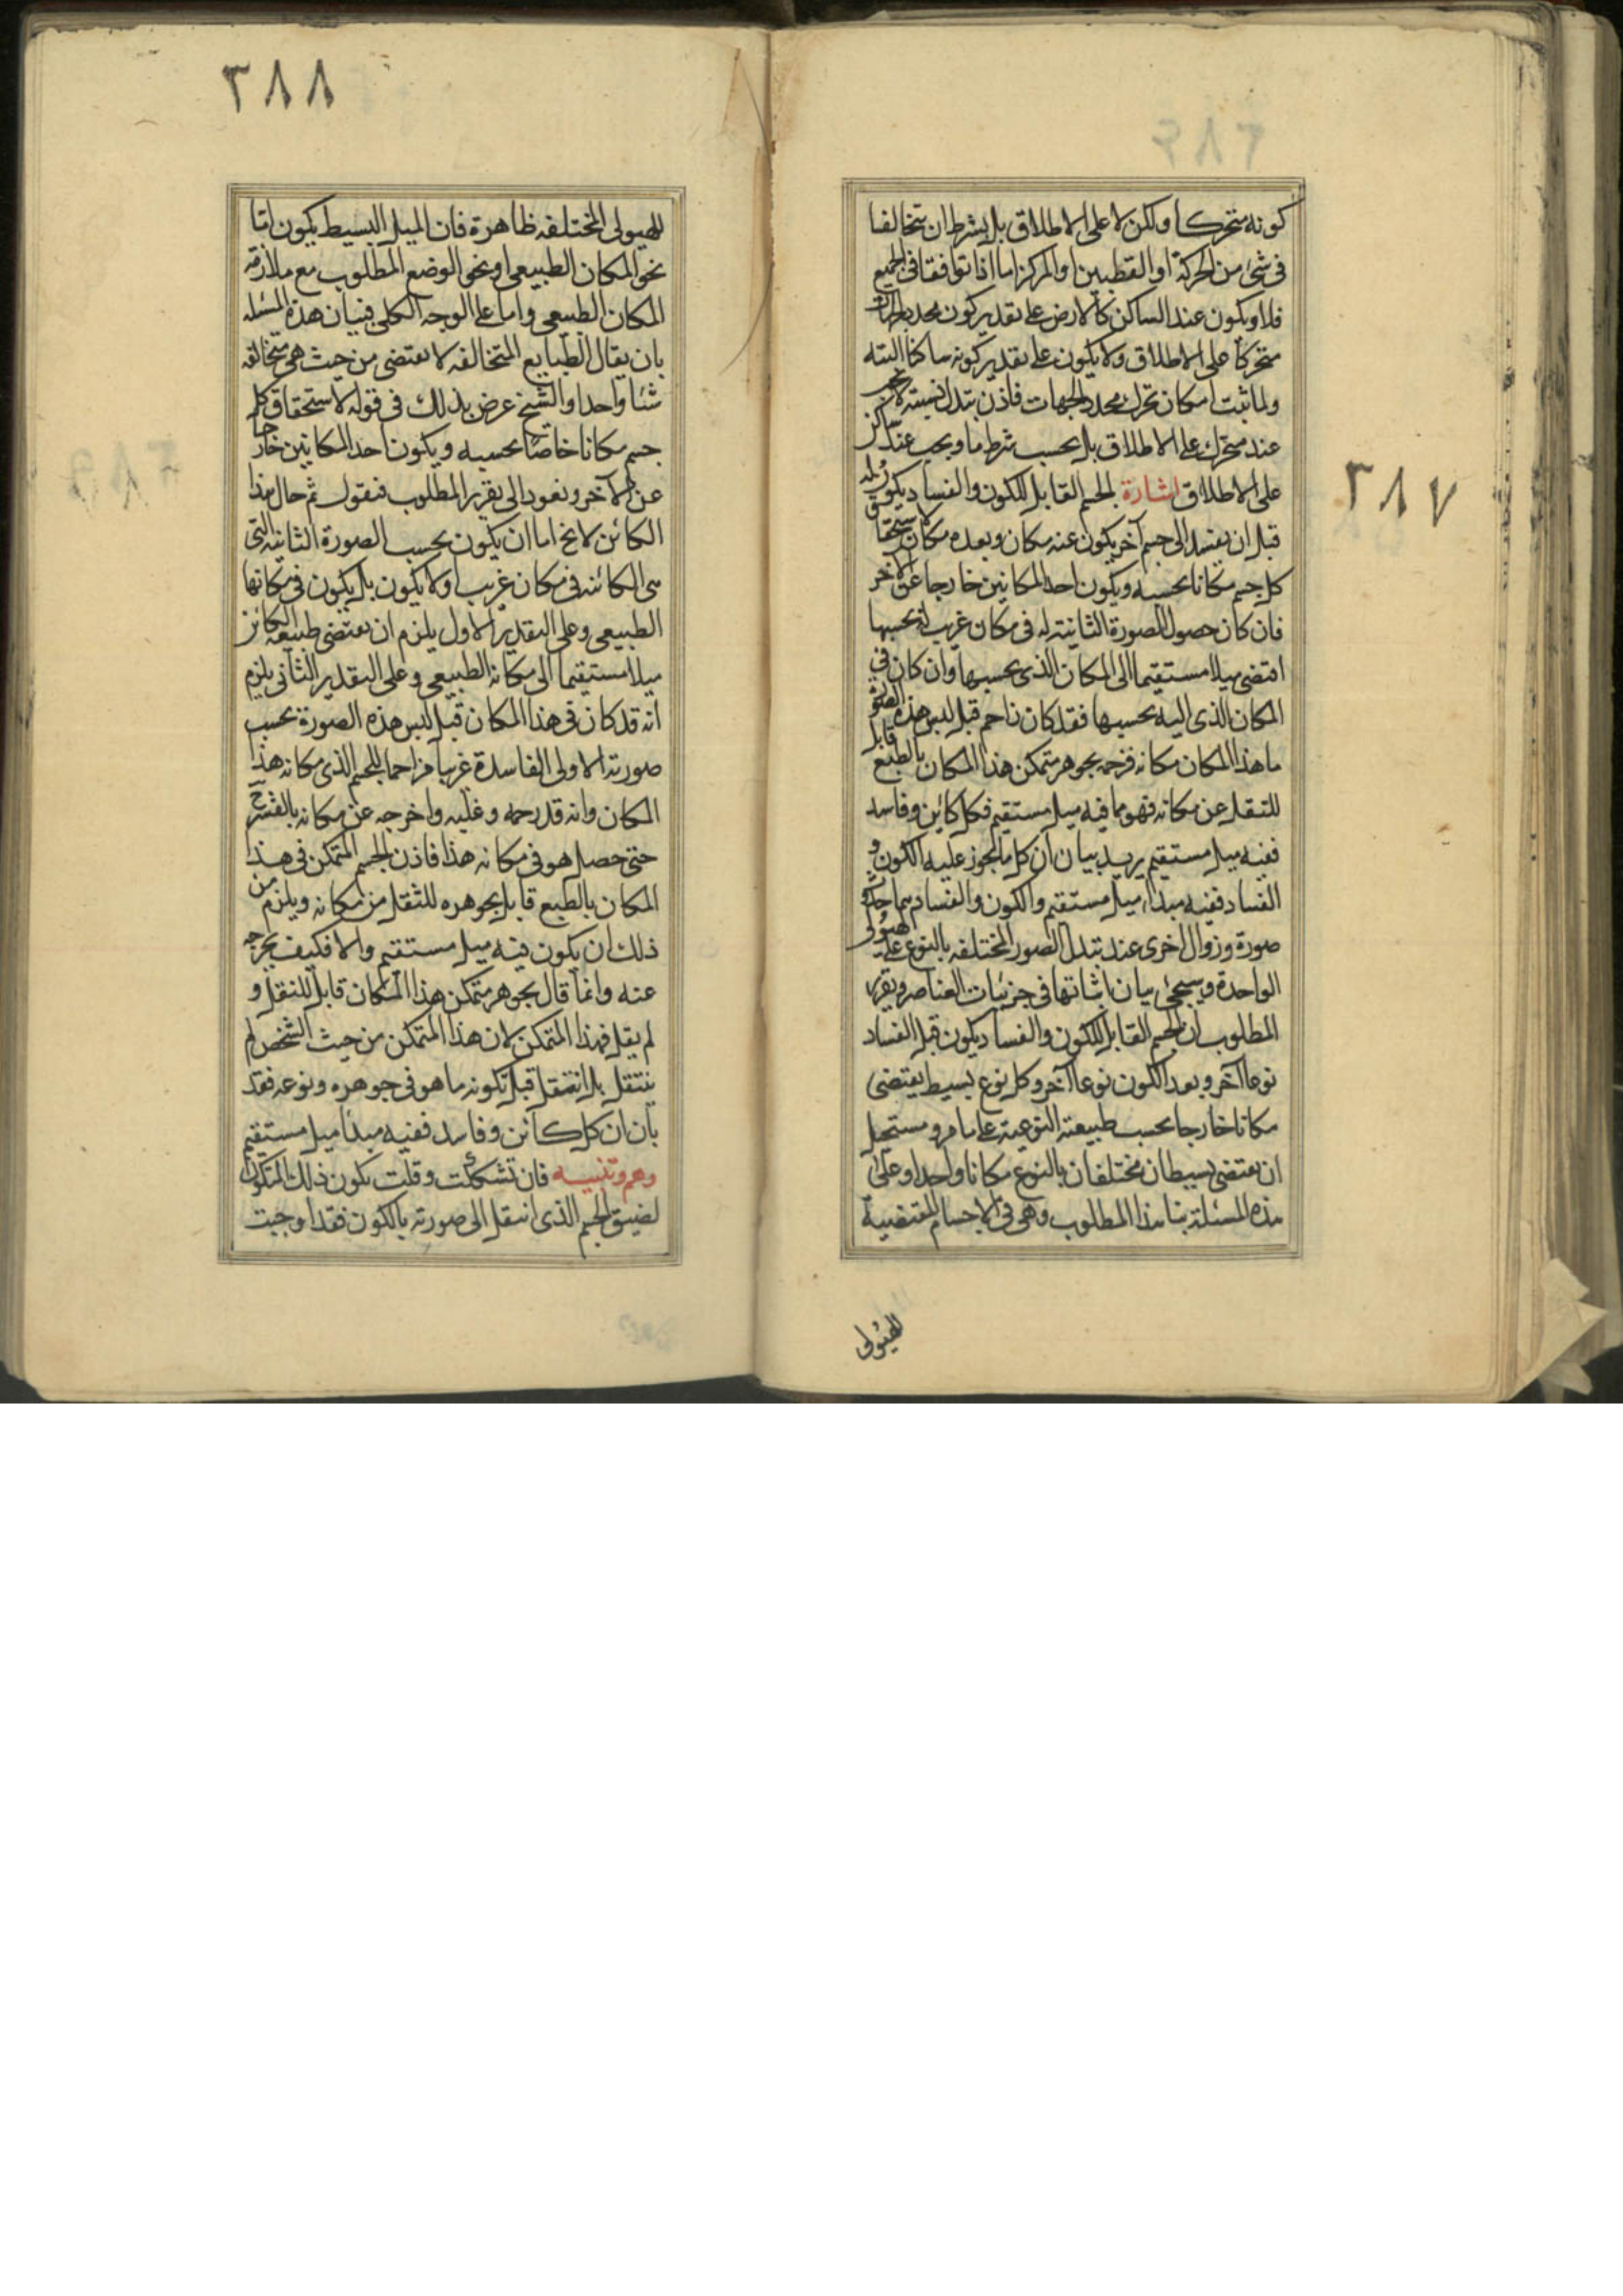 ٣٨٧
كونه متحركا ولكن لا على الاطلاق بل بشرط ان يتخالفا
فى شئ من الحركة او القطبين او المركز اما اذا توافقا فى الجميع
فلا ويكون عند الساكن كالارض على تقدير كون محدد الجهات
متحركا على الاطلاق ولا يكون على تقدير كونه ساكنا البته
ولما ثبت امكان تحرك محدد الجهات فاذن تبدل نسبته لا يجب
عند متحرك على الاطلاق بل بحسب شرط ما ويجب عند ساكن
على الاطلاق اشارة الجسم القابل للكون والفساد يكون له
قبل ان يفسد الى جسم آخر يكون عنه مكان وبعده مكان لاستحقاق
كل جسم مكانا بحسبه ويكون احد المكانين خارجا عن الآخر
فان كان حصول الصورة الثانية له فى مكان غريب له بحسبها
اقتضى ميلا مستقيما الى المكان الذى بحسبها وان كان فى
المكان الذى اليه بحسبها فقد كان زاحم قبل لبس هذه الصورة
ما هذا المكان مكانه فزحمه بجوهر متمكن هذا المكان بالطبع قابل
للتنقل عن مكانه فهو مما فيه ميل مستقيم فكل كاين وفاسد
ففيه ميل مستقيم يريد بيان ان كل ما يجوز عليه الكون و
الفساد ففيه مبدأ ميل مستقيم والكون والفساد هما حدوث
صورة وزوال اخرى عند تبدل الصور المختلفه بالنوع على الهيولى
الواحدة وسيجئ بيان اثباتها فى جزئيات العناصر وتقرير
المطلوب ان الجسم القابل للكون والفساد يكون قبل الفساد
نوعا آخر وبعد الكون نوعا آخر وكل نوع بسيط يقتضى
مكانا خارجا بحسب طبيعته النوعية على ما مر ومستحيل
ان يقتضى بسيطان مختلفان بالنوع مكانا واحدا وعلى
هذه المسئلة بنا هذا المطلوب وهى فى الاجسام المقتضية
الهيولى
٣٨٨
للهيولى المختلفه ظاهرة فان الميل البسيط يكون اما
نحو المكان الطبيعى او نحو الوضع المطلوب مع ملازمة
المكان الطبيعى واما على الوجه الكلى فبيان هذه المسئله
بان يقال الطبايع المتخالفه لا يقتضى من حيث هى متخالفه
شئا واحدا والشيخ عرض بذلك فى قوله لاستحقاق كل
جسم مكانا خاصا بحسبه ويكون احد المكانين خارجا
عن الآخر ونعود الى تقرير المطلوب فنقول ثم حال هذا
الكائن لا يخ اما ان يكون بحسب الصورة الثانية التى
هى الكائنه فى مكان غريب او لا يكون بل يكون فى مكانها
الطبيعى وعلى التقدير الاول يلزم ان يقتضى طبيعة الكائن
ميلا مستقيما الى مكانه الطبيعى وعلى التقدير الثانى يلزم
انه قد كان فى هذا المكان قبل لبس هذه الصورة بحسب
صورته الاولى الفاسدة غريبا مزاحما للجسم الذى مكانه هذا
المكان وانه قد زحمه وغلبه واخرجه عن مكانه بالقسر
حتى حصل هو فى مكانه هذا فاذن الجسم المتمكن فى هذا
المكان بالطبع قابل بجوهره للتنقل من مكانه ويلزم من
ذلك ان يكون فيه ميل مستقيم والا فكيف يخرجه
عنه وانما قال بجوهر متمكن هذا المكان قابل للتنقل و
لم يقل فهذا المتمكن لان هذا المتمكن من حيث الشخص لم
ينتقل بل انتقل قبل تكونه ما هو فى جوهره ونوعه فقد
بان ان كل كائن وفاسد ففيه مبدأ ميل مستقيم
وهم وتنبيه فان تشككت وقلت يكون ذلك المتكون
لصيق الجسم الذى انتقل الى صورته بالكون فقد اوجبت